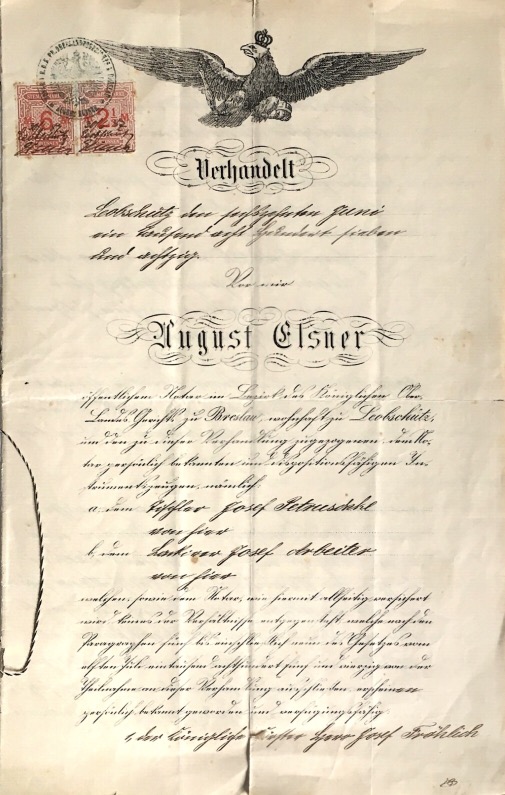 6 2
Verhandelt
Leobschütz den sechszehnten Juni
ein tausend acht hundert sieben
und achtzig.
Vor mir
August Elsner
öffentlichem Notar im Bezirk des Königlichen Ober-
Landes Gerichts zu Breslau, wohnhaft zu Leobschütz,
und den zu dieser Verhandlung zugezogenen, dem No-
tar persönlich bekannten und dispositionsfähigen In-
strumentszeugen, nämlich
a, dem Tischler Josef
von hier
b, dem Josef Arbeiter
von hier
welchen, sowie dem Notar, wie hiermit allseitig versichert
wird, keines der Verhältnisse entgegensteht welche nach den
Paragraphen fünf bis einschließlich neun des Gesetzes vom
elften Juli eintausend achthundert fünf und vierzig von der
Theilnahme an dieser Verhandlung ausschließen, erschienen
persönlich bekannt geworden und verfügungsfähig
1, der Königliche Herr Josef Fröhlich